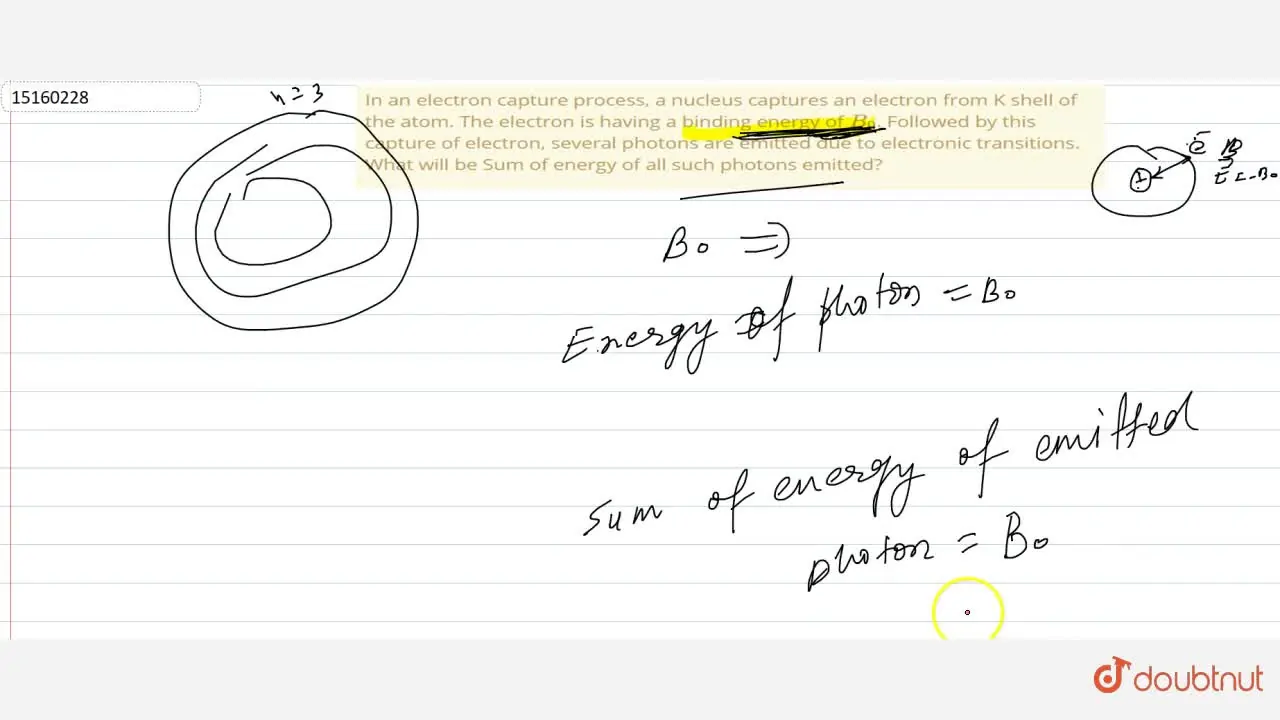 15160228
n = 3
In an electron capture process, a nucleus captures an electron from K shell of
the atom. The electron is having a binding energy of B₀. Followed by this
capture of electron, several photons are emitted due to electronic transitions.
What will be Sum of energy of all such photons emitted?
E = -B₀
B₀ ⇒
Energy of photon = B₀
Sum of energy of emitted
photon = B₀
doubtnut